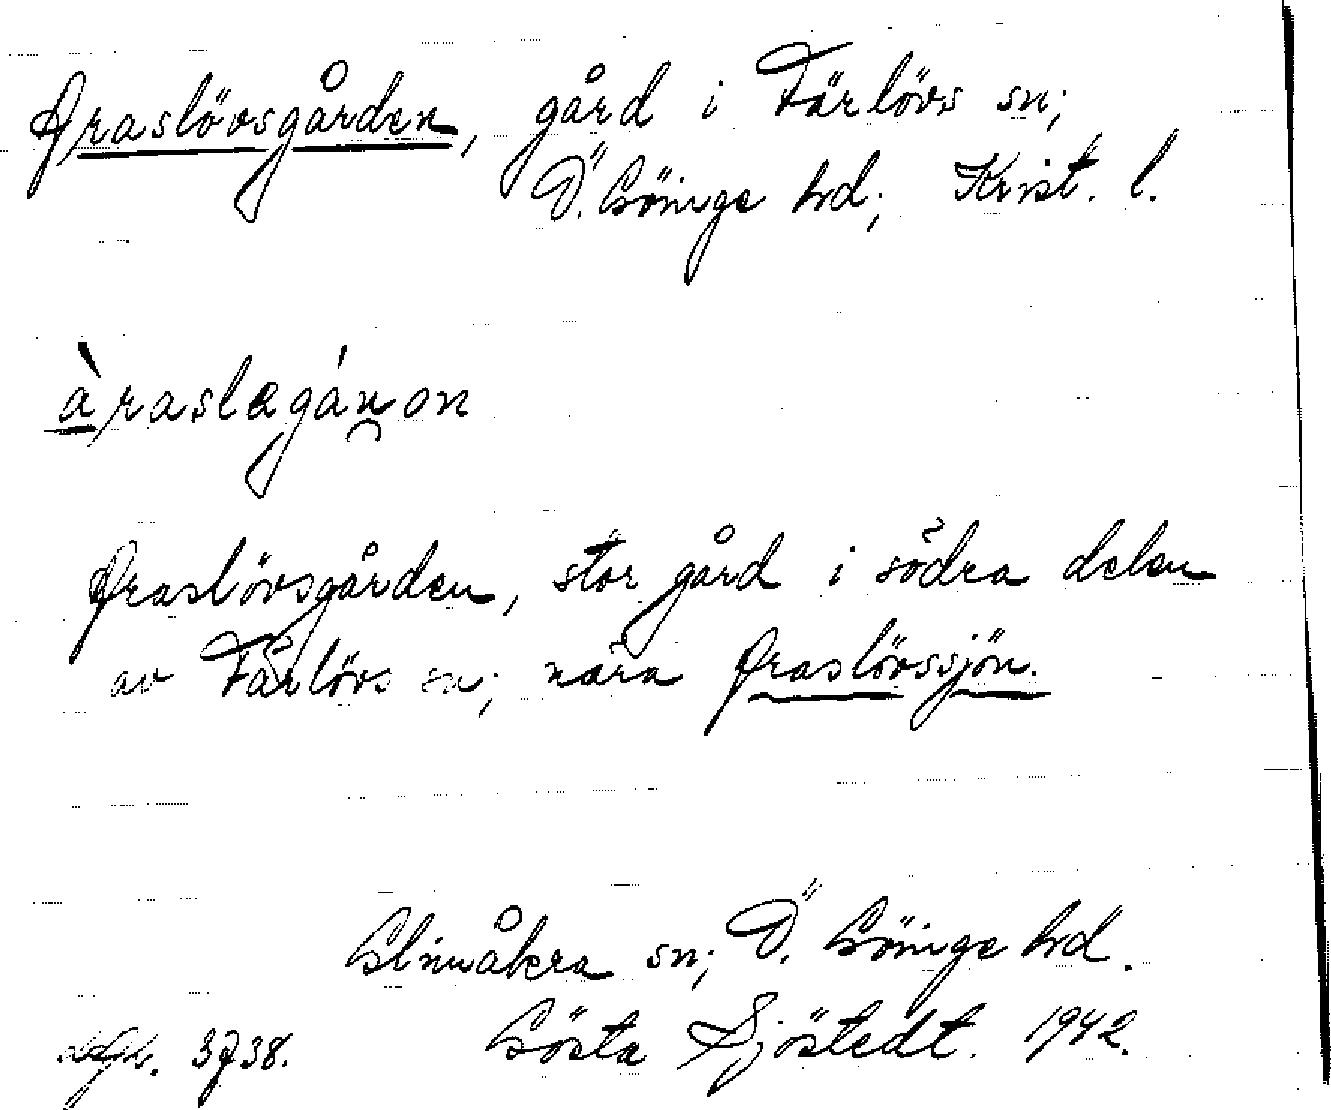 Araslövsgården, gård i Färlövs sn;
Ö. Göinge hd; Krist. l.
àraslagán on
Araslövsgården, stor gård i södra delen
av Färlövs sn; nära Araslövssjön.
Glimåkra sn; Ö. Göinge hd.
Gösta Sjöstedt. 1942.
3738.